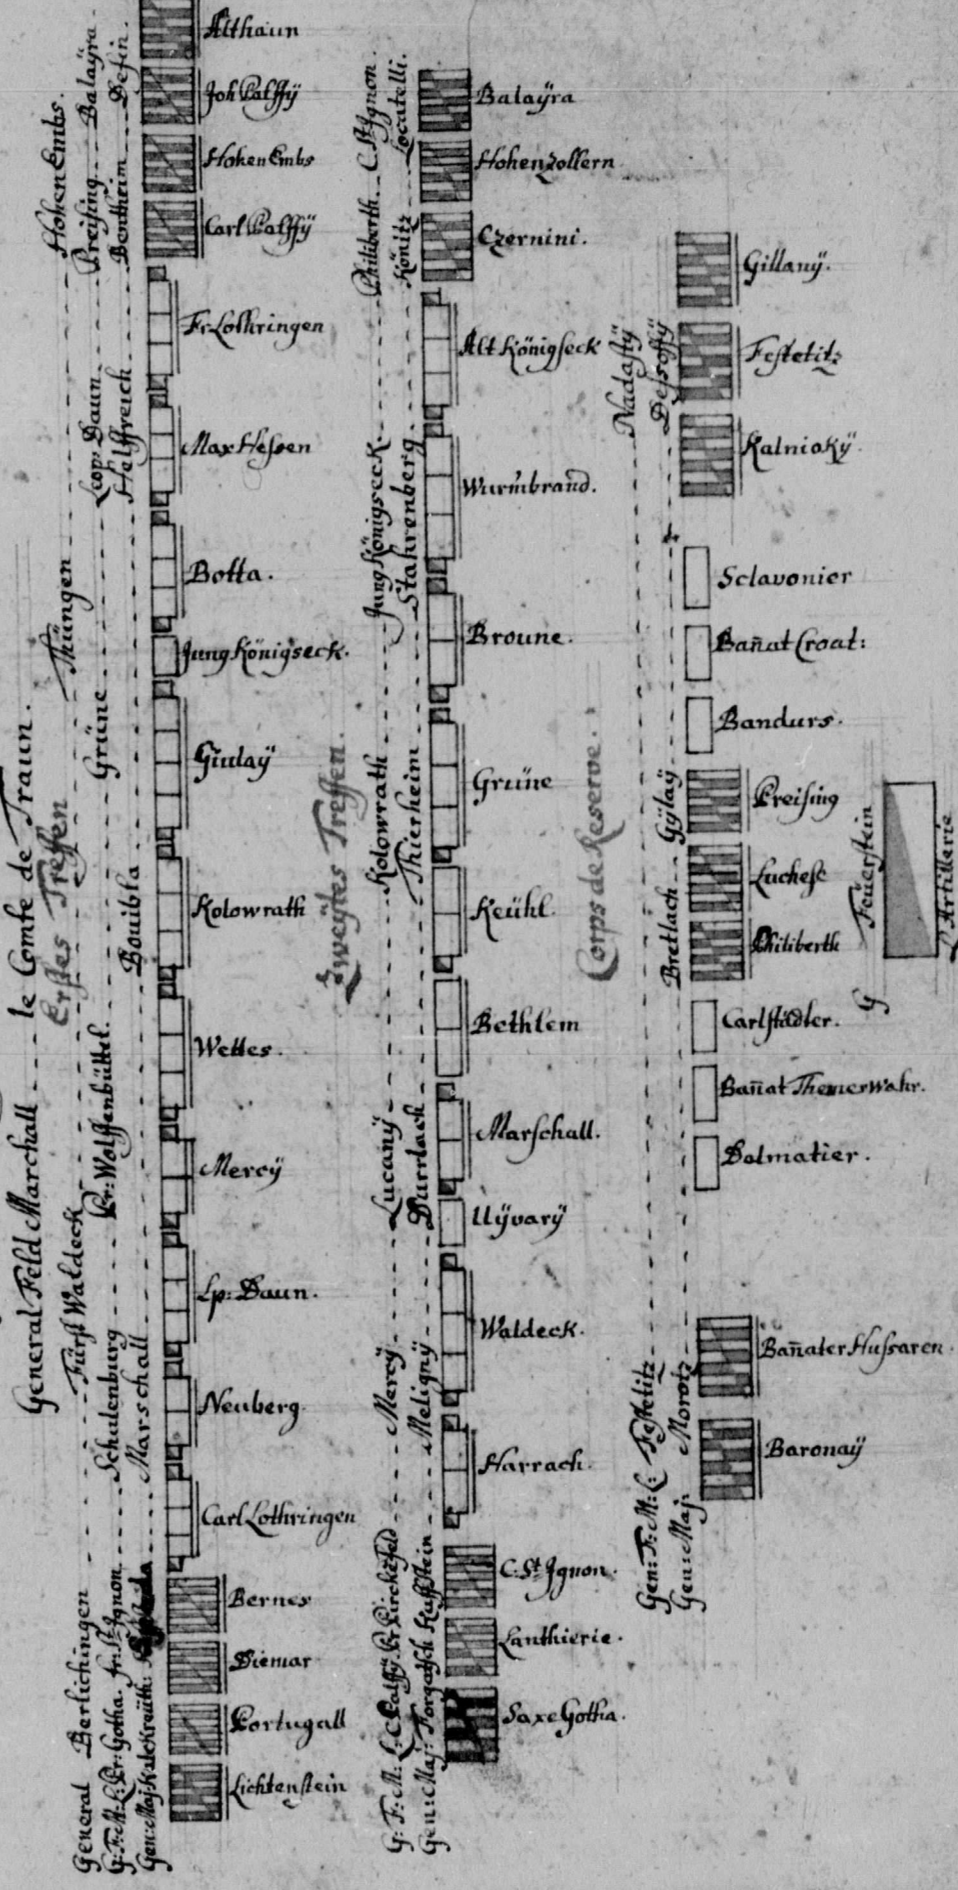 General Feld Marchall le Comte de Traun.
Erstes Treffen
General Berlichingen Fürst Waldeck Thüngen Hohen Embs.
G: F: M: L: Pr: Gotha. fr: St: Ignon Schulenburg Pr: Wolffenbüttel Grüne Leop: Daun Preising Balaÿra
Gen: Maj: KalcKreüth: Marschall Bouibla Helffreich Bentheim Desin.
Althaun
Joh Palffÿ
Hohen Embs
Carl Palffÿ
Fr: Lothringen
Max Hessen
Botta.
Jung Königseck.
Giulaÿ
Kolowrath
Wettes.
Mercÿ
Lp: Daun.
Neuberg
Carl Lothringen
Bernes
Diemar
Portugall
Lichtenstein
Zweÿtes Treffen.
G: F: M: L: C Palffÿ Pr Birckefeld Mercÿ Lucanÿ Kolowrath Jung Königseck Philiberth C. St Ignon
Gen: Maj: Forgatsch Kuffstein Melignÿ Durrlach Thierheim Stahrenberg Könitz Locatelli.
Balaÿra
Hohenzollern
Czernini.
Alt Königseck
Wurmbrand.
Broune.
Grüne
Keühl.
Bethlem
Marschall.
Uÿvarÿ
Waldeck.
Harrach.
C: St Ignon.
Lanthierie.
Saxe Gotha.
Corps de Reserve.
Gen: F: M: L: Festetitz Bretlach Nadastÿ
Gen: Maj: Morotz Gÿlaÿ Dessoffÿ
Gillanÿ.
Festetitz
Kalniokÿ
Sclavonier
Bañat Croat:
Bandurs.
Preising
Luchese
Philiberth
Carlstädter.
Bañat Themerwahr.
Dalmatier.
Bañater Hussaren.
Baronaÿ
G Feüerstein
l'Artillerie